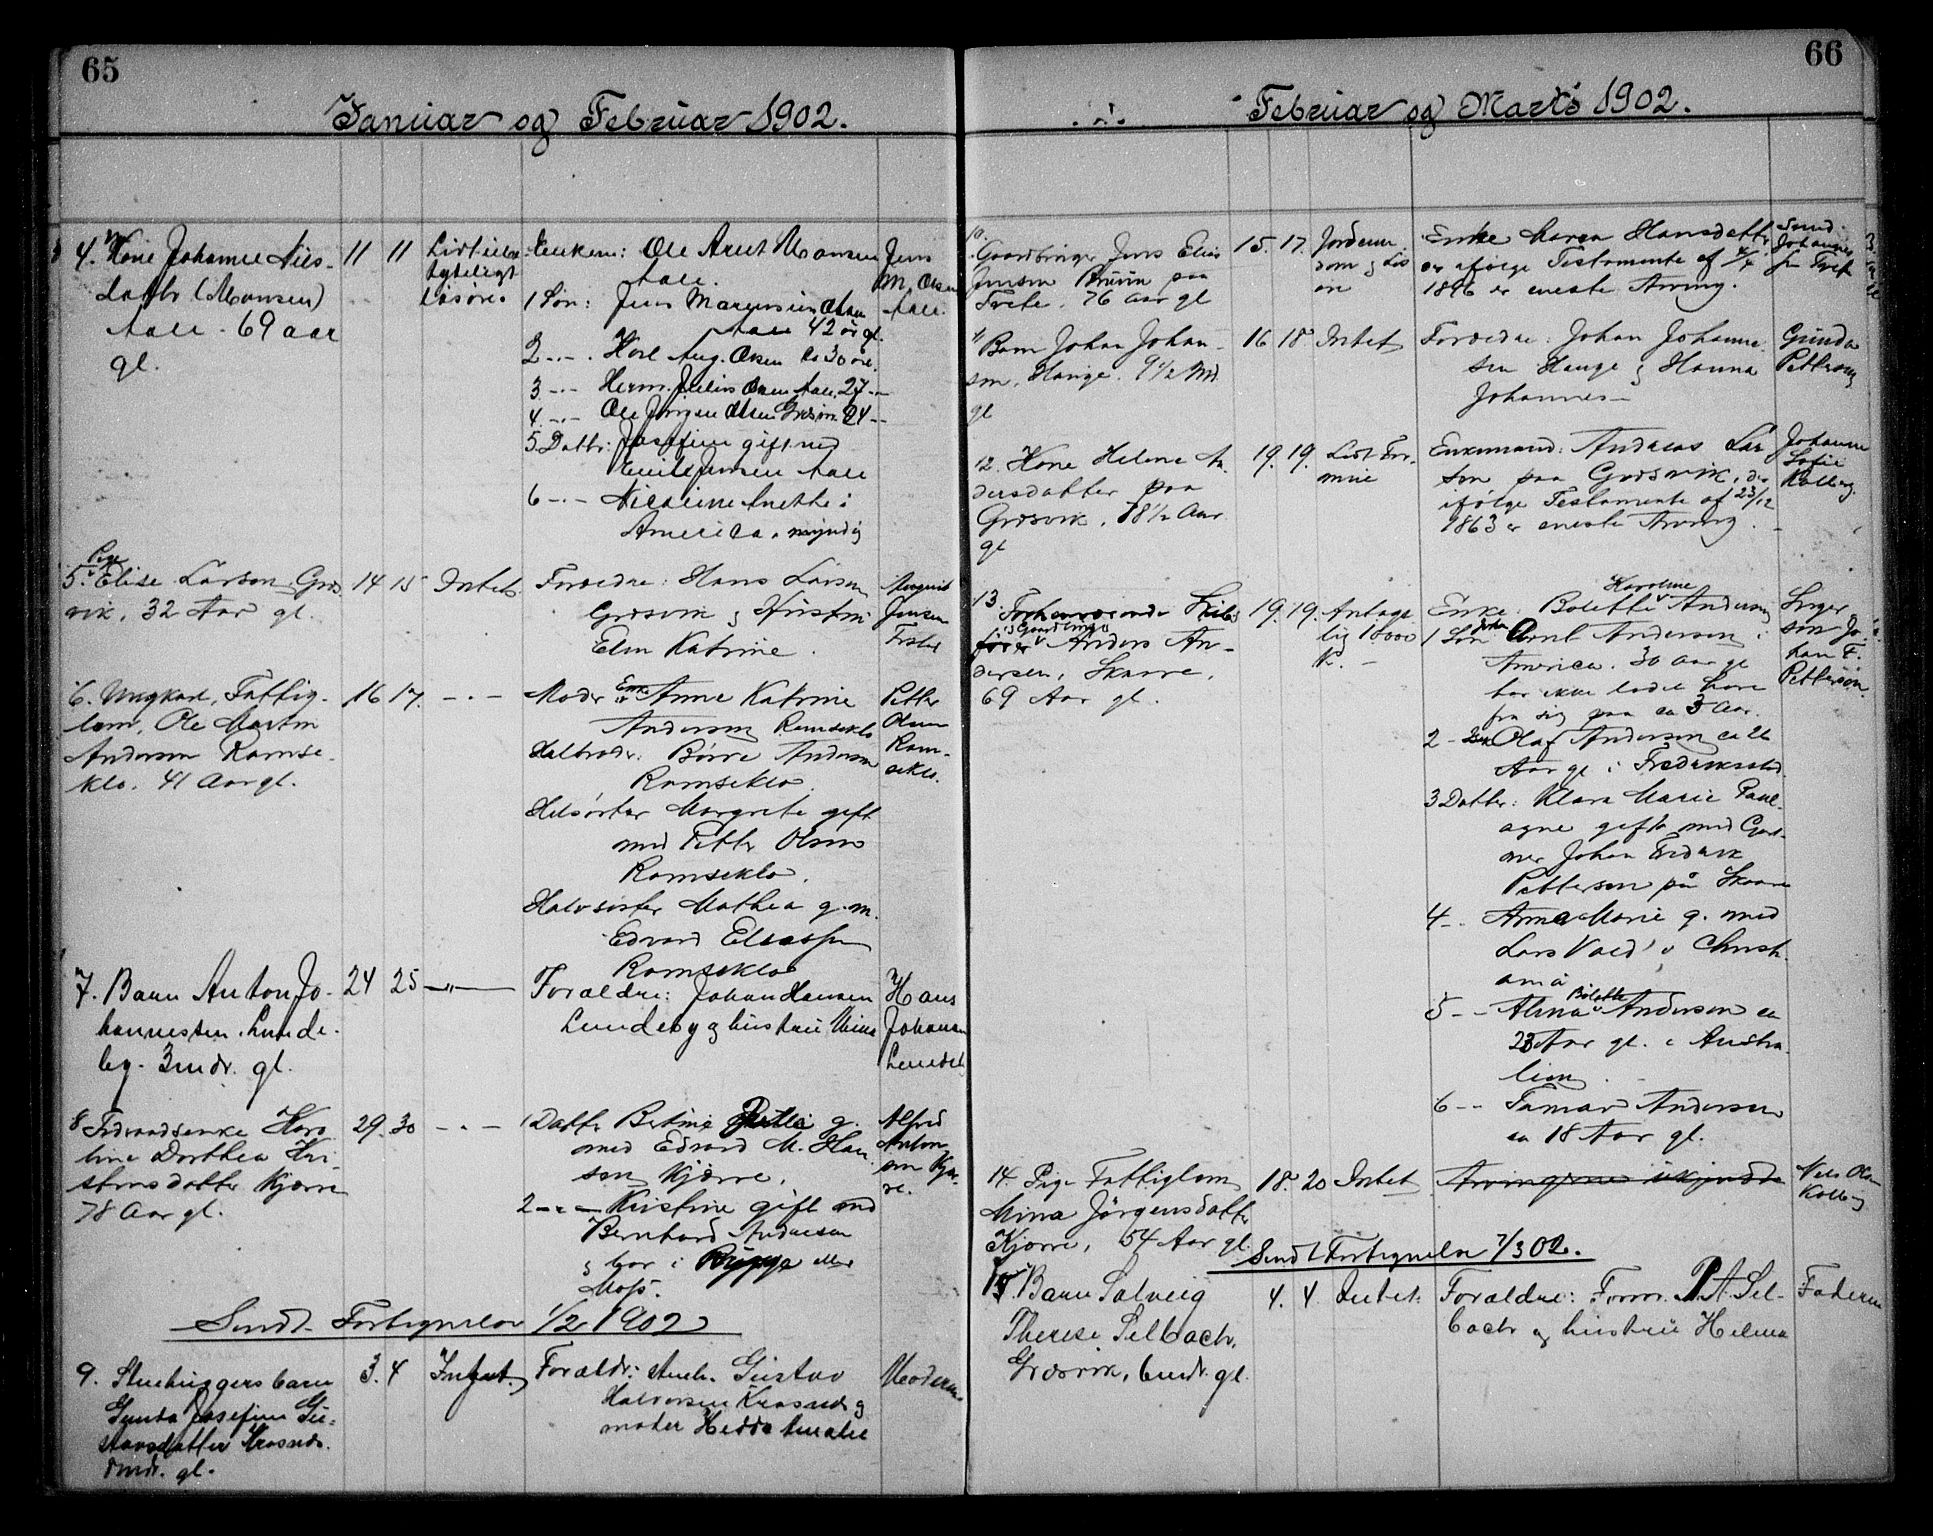 65
Januar og Februar 1902.
4. Kone Johanne Nils-
datter (Monsen)
Aale. 69 aar
gl.
11 11
ubetydeligt
Løsøre
Enkem: Ole Arnt Monsen
Aale.
1 Søn: Jens Olsen
Aale 42 år gl.
2 -"- Karl Aug. Olsen ca 30 åre.
3 -"- Herm. Julius Olsen Aale, 27 -"-
4 -"- Ole Jørgen Olsen Græsvik 24 -"-
5 Dattr: Josefine gift med
Emil Jensen Aale
6 -"- Nicoline Anette i
America. myndig
Jens
M. Olsen
Aale.
5. Pige Elise Larsen Græs
vik, 32 Aar gl.
14 15 Intet
Forældre: Hans Larsen
Græsvik og Hustru
Elen Katrine.
Jensen
6. Ungkarl, Fattig-
lem, Ole Martin
Andersen Ramse-
klo. 41 Aar gl.
16 17. -"-
Moder Enke Anne Katrine
Andersen Ramseklo
Halbroder: Børre Andersen
Ramseklo.
Helsøster Margrete gift
med Petter Olsen
Ramseklo.
Halvsøster Mathea g. m.
Edvard Eliassen
Ramseklo
Petter
Olsen
Ram-
seklo.
7. Barn Anton Jo-
hannessen. Lunde-
by. 3 mdr. gl.
24 25 -"-
Forældre: Johan Hansen
Lundeby og hustru Mina
Hans
Johansen
Lundeby
8 Føderaadsenke Karo
line Dorthea Kri-
stensdatter Kjærre
78 Aar gl.
29. 30 -"-
1 Datter Bertine g.
med Edvard M. Han
sen Kjærre.
2 -"- Kristine gift med
Bernhard Andresen
og bor i Rygge eller
Moss.
Alfred
Anton
sen Kjær-
re.
Sendt Fortegnelse 1/2 1902
9. Stenhuggers barn
Gunda Josefine Gu-
stavsdatter Krosnes.
mdr. gl.
3. 4 Intet.
Forældr: Stenh. Gustav
Halvorsen Krosnes og
moder Hedda Amalie
Moderen
66
Februar og Marts 1902.
10.
Gaardbruger Jens Elias
Jensen Bruun paa
Torte. 76 aar gl
15. 17.
Jordeien
dom og Løs
øre
Enke Maren Hansdatter
er ifølge Testamente af 4/4
1896 er eneste Arving.
Johannes
11 Barn Johan Johan-
sen, Hauge. 9 1/2 Md.
gl
16 18 Intet
Forældre: Johan Johanne
sen Hauge og Hanna
Johannes-
Gunda
Pettersen
12. Kone Helene An
dersdatter paa
Græsvik, 78 1/2 Aar
gl
19. 19. Lidt For-
mue
Enkemand: Andreas Lar
sen paa Græsvik, der
ifølge Testamente af 23/12
1863 er eneste Arving.
Johanne
Sofie
Kolberg
13. Forhenværende Skibs
fører Gaardbruger Anders An-
dersen, Skaare,
69 Aar gl.
19. 19. Antage
lig 10000
K. -
Enke. Bolette Karoline Andersen
1 Søn John Arnt Andersen i
America. 30 Aar gl
har ikke ladet høre
fra sig paa ca 3 Aar.
2 - Olaf Andersen ca 26
Aar gl i Fredriksstad.
3 Datter: Klara Marie Paul-
agne gift med Gart-
ner Johan Fredrik
Pettersen på Skaare
4 -- Anna Marie g. med
Lars Vold i Christi
ania
5 -- Alma Bolette Andersen ca
23 Aar gl. i Austra-
lien.
6 -- Tamar Andersen
ca 18 Aar gl.
Sviger
søn Jo-
han F.
Pettersen
14. Pige Fattiglem
Mina Jörgensdatter
Kjærre, 54 Aar gl.
18. 20 Intet
Arvingerne ukjendte
Nels Olsen
Kolberg
Sendt Fortegnelse 7/3 02.
15. Barn Solveig
Therese Selbach,
Græsvik, 6 mdr. gl.
4. 4. Intet.
Forældre: Form. P. A. Sel-
bach og hustru Helma
Faderen